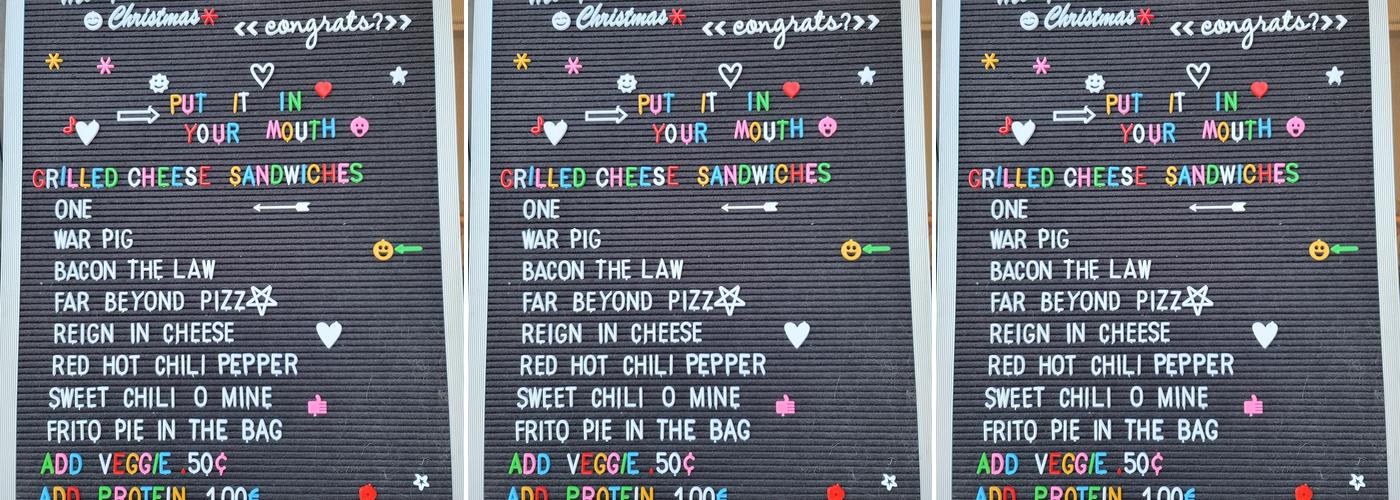 Christmas
<< congrats? >>
PUT IT IN
YOUR MOUTH
GRILLED CHEESE SANDWICHES
ONE
WAR PIG
BACON THE LAW
FAR BEYOND PIZZ☆
REIGN IN CHEESE
RED HOT CHILI PEPPER
SWEET CHILI O MINE
FRITO PIE IN THE BAG
ADD VEGGIE .50¢
ADD PROTEIN 1.00¢
Christmas
<< congrats? >>
PUT IT IN
YOUR MOUTH
GRILLED CHEESE SANDWICHES
ONE
WAR PIG
BACON THE LAW
FAR BEYOND PIZZ☆
REIGN IN CHEESE
RED HOT CHILI PEPPER
SWEET CHILI O MINE
FRITO PIE IN THE BAG
ADD VEGGIE .50¢
ADD PROTEIN 1.00¢
Christmas
<< congrats? >>
PUT IT IN
YOUR MOUTH
GRILLED CHEESE SANDWICHES
ONE
WAR PIG
BACON THE LAW
FAR BEYOND PIZZ☆
REIGN IN CHEESE
RED HOT CHILI PEPPER
SWEET CHILI O MINE
FRITO PIE IN THE BAG
ADD VEGGIE .50¢
ADD PROTEIN 1.00¢